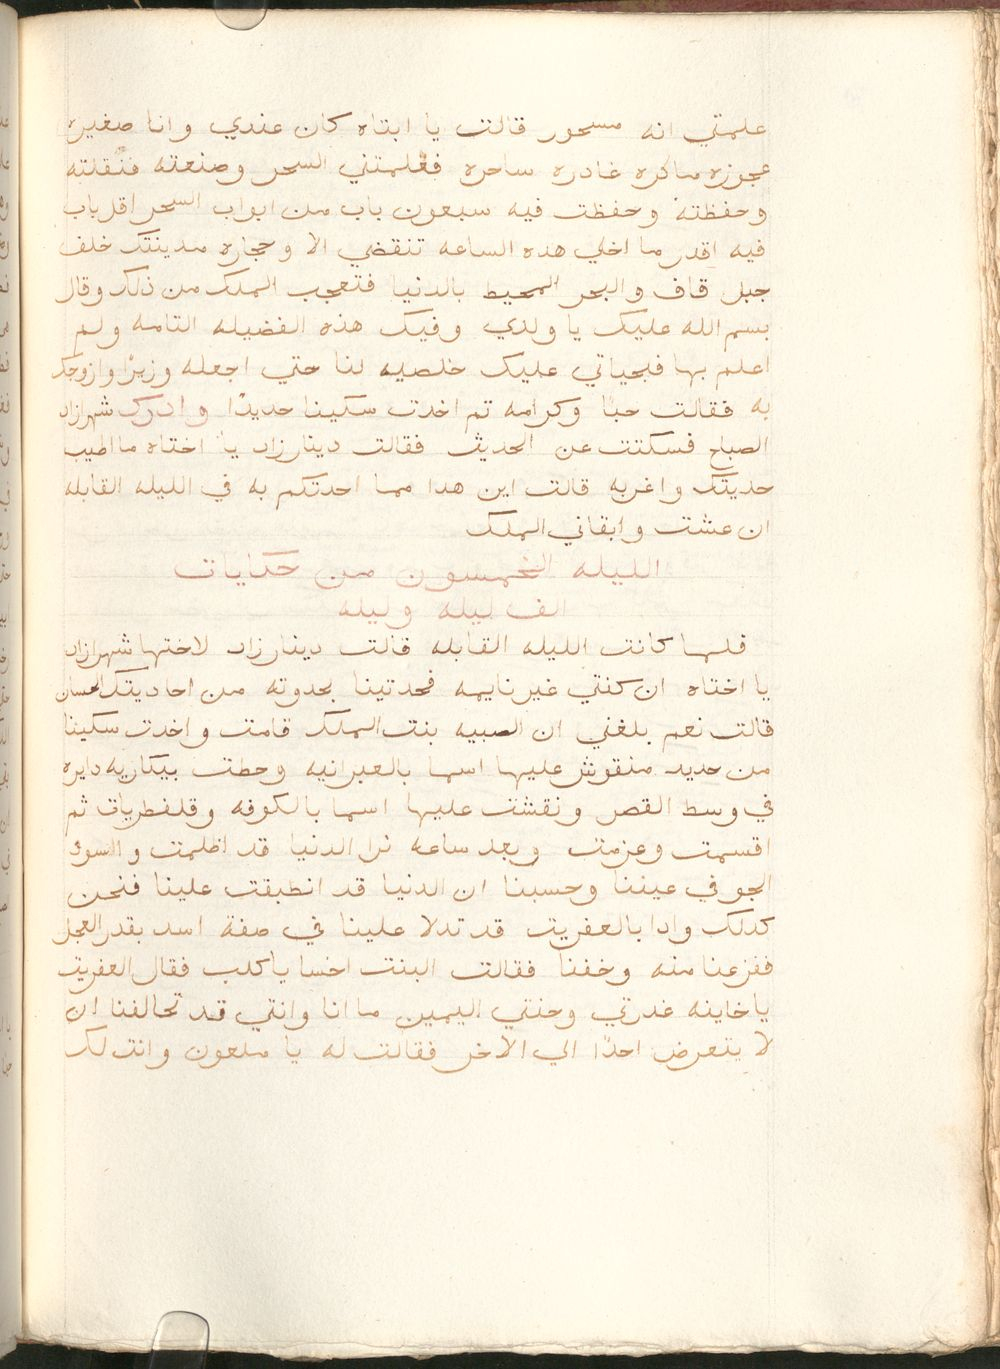 علمتي انه مسحور قالت يا ابتاه كان عندي وانا صغيره
عجوزه ماكره غادره ساحره فعلمتني السحر وصنعته فنقلته
وحفظته وحفظت فيه سبعون باب من ابواب السحر اقل باب
فيه اقدر ما اخلي هده الساعه تنقضي الا وحجاره مدينتك خلف
جبل قاف والبحر المحيط بالدنيا فتعجب الملك من ذلك وقال
بسم الله عليك يا ولدي وفيك هذه الفضيله التامه ولم
اعلم بها فبحياتي عليك خلصيه لنا حتي اجعله وزيرًا وازوجك
به فقالت حبًا وكرامه تم اخدت سكينا حديدًا وادرك شهرازاد
الصباح فسكتت عن الحديث فقالت دينارزاد يا اختاه ما اطيب
حديتك واغربه قالت اين هدا مما احدتكم به في الليله القابله
ان عشت وابقاني الملك
الليله الخمسون من حكايات
الف ليله وليله
فلما كانت الليله القابله قالت دينارزاد لاختها شهرازاد
يا اختاه ان كنتي غير نايمه فحدتينا بحدوته من احاديتك الحسان
قالت نعم بلغني ان الصبيه بنت الملك قامت واخدت سكينا
من حديد منقوش عليها اسما بالعبرانيه وحطت بيكاريه دايره
في وسط القصر ونقشت عليها اسما بالكوفه وقلفطريات ثم
اقسمت وعزمت وبعد ساعه نرا الدنيا قد اظلمت والسود
الجو في عيننا وحسبنا ان الدنيا قد انطبقت علينا فنحن
كدلك وادا بالعفريت قد تدلا علينا في صفة اسد بقدر العجل
ففزعنا منه وخفنا فقالت البنت اخسا يا كلب فقال العفريت
يا خاينه غدرتي وحنتي اليمين ما انا وانتي قد تحالفنا ان
لا يتعرض احدًا الي الاخر فقالت له يا ملعون وانت لك